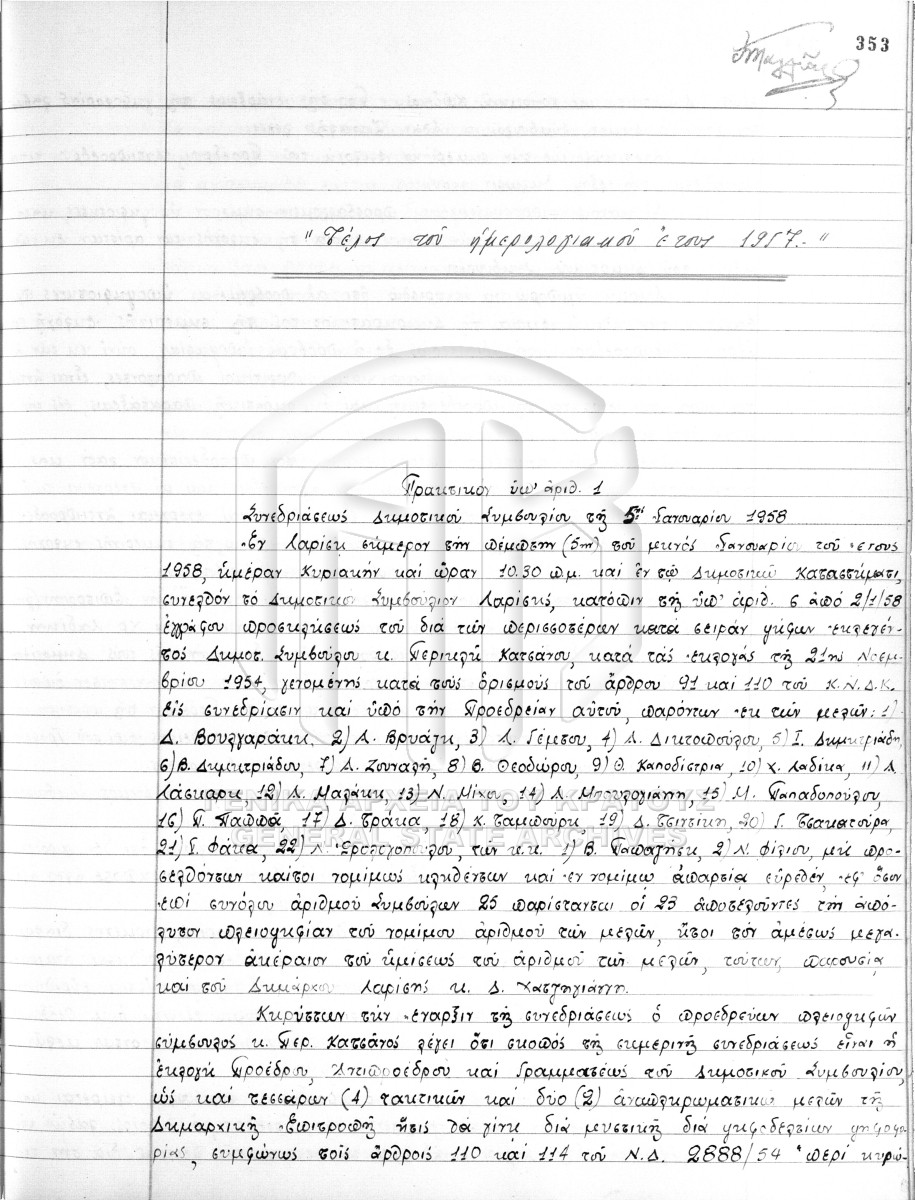 353
"Τέλος τοῦ ἡμερολογιακοῦ ἔτους 1957."
Πρακτικόν ὑπ' ἀριθ. 1
Συνεδριάσεως Δημοτικοῦ Συμβουλίου τῆς 5ης Ἰανουαρίου 1958
Ἐν Λαρίσῃ σήμερον τήν πέμπτην (5ην) τοῦ μηνός Ἰανουαρίου τοῦ ἔτους
1958, ἡμέραν Κυριακήν καί ὥραν 10.30 π.μ. καί ἐν τῷ Δημοτικῷ Καταστήματι,
συνελθόν τό Δημοτικόν Συμβούλιον Λαρίσης, κατόπιν τῆς ὑπ' ἀριθ. 6 ἀπό 2/1/58
ἐγγράφου προσκλήσεως τοῦ διά τῶν περισσοτέρων κατά σειράν ψήφων ἐκλεγέν-
τος Δημοτ. Συμβούλου κ. Περικλῆ Κατσάνου, κατά τάς ἐκλογάς τῆς 21ης Νοεμ-
βρίου 1954, γενομένης κατά τούς ὁρισμούς τοῦ ἄρθρου 91 καί 110 τοῦ Κ.Ν.Δ.Κ.
εἰς συνεδρίασιν καί ὑπό τήν Προεδρείαν αὐτοῦ, παρόντων ἐκ τῶν μελῶν: 1)
Δ. Βουλγαράκη, 2) Α. Βρυάζη, 3) Λ. Γέμτου, 4) Α. Δικτοπούλου, 5) Ι. Δημητριάδη,
6) Β. Δημητριάδου, 7) Α. Ζουναλῆ, 8) Β. Θεοδώρου, 9) Θ. Καποδίστρια, 10) Χ. Λαδίκα, 11) Λ.
Λάσκαρη, 12) Λ. Μαλάκη, 13) Ν. Μίχου, 14) Λ. Μπουλογιάννη, 15) Μ. Παπαδοπούλου,
16) Π. Παππᾶ, 17) Δ. Τράκα, 18) Κ. Ταμπούρη, 19) Δ. Τσιτσίκη, 20) Γ. Τσακατούρα,
21) Γ. Φάκα, 22) Λ. τῶν κ.κ. 1) Β. Παπαζήση, 2) Ν. Φίλιου, μή προ-
σελθόντων καίτοι νομίμως κληθέντων καί ἐν νομίμῳ ἀπαρτίᾳ εὑρεθέν, ἐφ' ὅσον
ἐπί συνόλου ἀριθμοῦ Συμβούλων 25 παρίστανται οἱ 23 ἀποτελοῦντες τήν ἀπό-
λυτον πλειοψηφίαν τοῦ νομίμου ἀριθμοῦ τῶν μελῶν, ἤτοι τόν ἀμέσως μεγα-
λύτερον ἀκέραιον τοῦ ἡμίσεως τοῦ ἀριθμοῦ τῶν μελῶν, τούτων, παρουσίᾳ
καί τοῦ Δημάρχου Λαρίσης κ. Δ. Χατζηγιάννη.
Κηρύττων τήν ἔναρξιν τῆς συνεδριάσεως ὁ προεδρεύων πλειοψηφῶν
σύμβουλος κ. Περ. Κατσάνος λέγει ὅτι σκοπός τῆς σημερινῆς συνεδριάσεως εἶναι ἡ
ἐκλογή Προέδρου, Ἀντιπροέδρου καί Γραμματέως τοῦ Δημοτικοῦ Συμβουλίου,
ὡς καί τεσσάρων (4) τακτικῶν καί δύο (2) ἀναπληρωματικῶν μελῶν τῆς
Δημαρχικῆς Ἐπιτροπῆς ἥτις θά γίνῃ διά μυστικῆς διά ψηφοδελτίων ψηφοφο-
ρίας, συμφώνως τοῖς ἄρθροις 110 καί 114 τοῦ Ν.Δ. 2888/54 "περί κυρώ-
ΓΕΝΙΚΑ ΑΡΧΕΙΑ ΤΟΥ ΚΡΑΤΟΥΣ
GENERAL STATE ARCHIVES